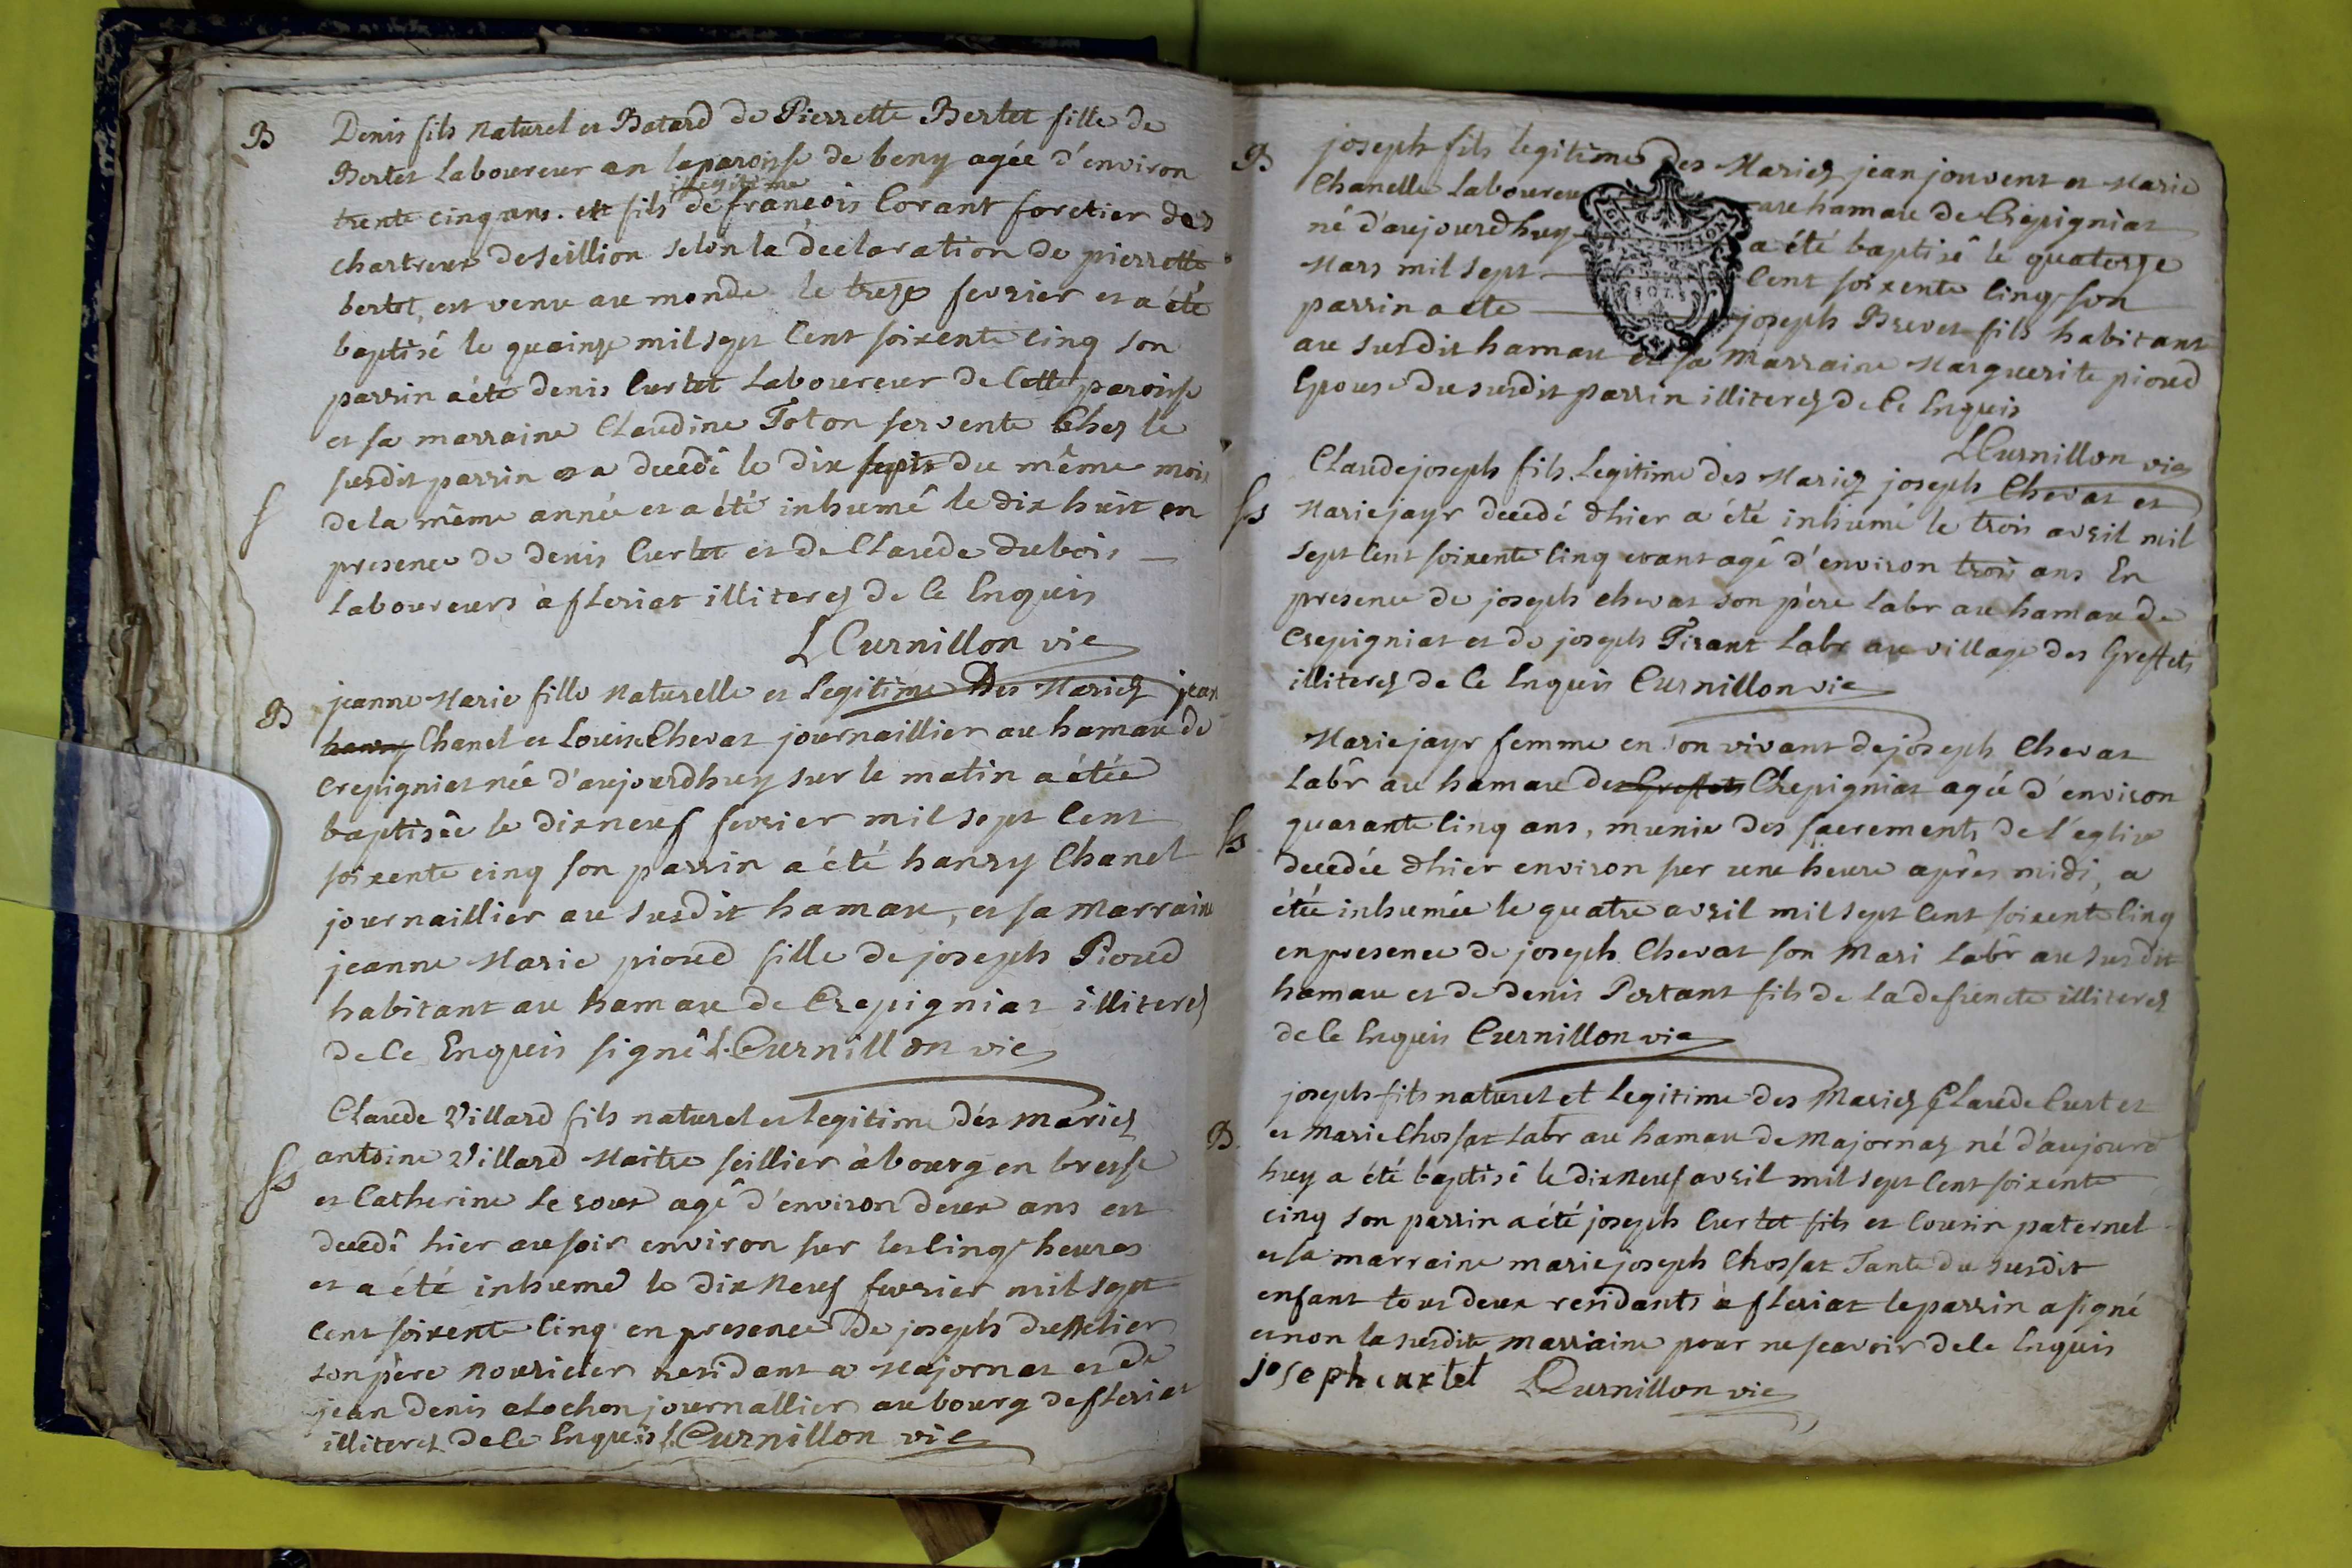 B
Denis fils naturel et Batard de Pierrette Bertet fille de
Bertet Laboureur en la paroisse de beny agée d'environ
illegitime
trente cinq ans. et fils de francois Corant foretier des
chartreux de seillion selon la declaration de pierrette
bertet, est venu au monde le treze fevrier et a été
baptisé le quainze mil sept Cent soixente cinq son
parrin a été denis Curtet Laboureur de Cette paroisse
et sa marraine Claudine Toton servente Chez le
susdit parrin et a decedé le dix sept du même mois
S
de la même année et a été inhumé le dix huit en
presence de denis Curtet et de Claude dubois
Laboureurs à fleriat illiterez de Ce Enquis
L Curnillon vic
B
jeanne Marie fille naturelle et Legitime Des Mariez jean
hanry Chanel et Louise Chevat journaillier au hamau de
Crepigniat née d'aujourdhuy sur le matin a étée
baptisée le dix neuf fevrier mil sept Cent
soixente cinq son parrin a été hanry Chanel
journaillier au susdit hamau, et sa Marraine
jeanne Marie pioud fille de joseph Pioud
habitant au hamau de Crepigniat illiterez
de Ce Enquis signé L. Curnillon vic
Claude Villard fils naturel et legitime dés mariez
Ss
antoine Villard Maitre seillier à bourg en bresse
et Catherine Le rour agé d'environ deux ans est
decedé hier au soir environ sur les Cinq heures
et a été inhumé le dix Neuf fevrier mil sept
Cent soixente Cinq en presence de joseph
son père nouricier residant a Majornat et de
jean denis elochon journallier au bourg de fleriat
illiterez de Ce Enquis L. Curnillon vic
B
joseph fils legitime des Mariez jean jouvent et Marie
Chanelle Laboureur au hamau de Crepigniat
né d'aujourdhuy a été baptisé le quatorze
Mars mil sept Cent soixente Cinq son
parrin a été joseph Brevet fils habitant
au susdit hamau et sa Marraine Marguerite pioud
Epouse du susdit parrin illiterez de Ce Enquis
L Curnillon vic
Claude joseph fils Legitime des Mariez joseph Chevat et
Ss
Marie jayr decedé dhier a été inhumé le trois avril mil
sept Cent soixente Cinq etant agé d'environ trois ans En
presence de joseph chevat son père Labr au hamau de
Crepigniat et de joseph Tirant Labr au village des Greffets
illiterez de Ce Enquis Curnillon vic
Marie jayr femme en son vivant de joseph Chevat
Labr au hamau des Greffets Chepigniat agée d'environ
quarante Cinq ans, munie des sacrements de l'eglise
Ss
decedée dhier environ sur une heure après midi, a
étée inhumée le quatre avril mil sept Cent soixente Cinq
en presence de joseph Chevat son Mari Labr au susdit
hamau et de denis Portant fils de la defuncte illiterez
de Ce Enquis Curnillon vic
joseph fils naturel et Legitime des Mariez Claude Curtet
B.
et Marie Chossat Labr au hamau de Majornaz né d'aujourd
huy a été baptisé le dix neuf avril mil sept Cent soixente
cinq son parrin a été joseph Curtet fils et Cousin paternel
et sa marraine marie joseph Chossat Tante du susdit
enfant tous deux residants à fleriat le parrin a signé
et non la susdite Marraine pour ne scavoir de Ce Enquis
joseph curtet L Curnillon vic